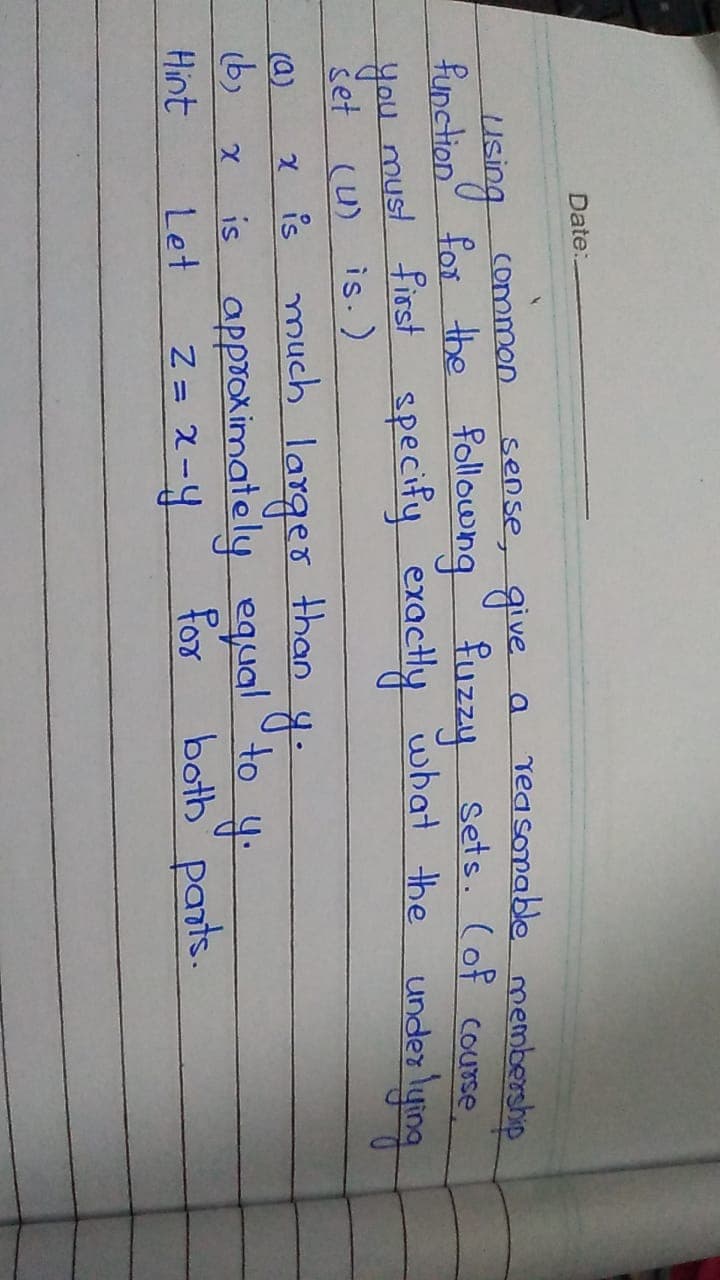 Date:
Using common sense, give a reasonable membership
function for the following fuzzy sets. (of course,
you must first specify exactly what the underlying
set (U) is.)
(a) x is much larger than y.
(b) x is approximately equal to y.
Hint Let z = x-y for both parts.